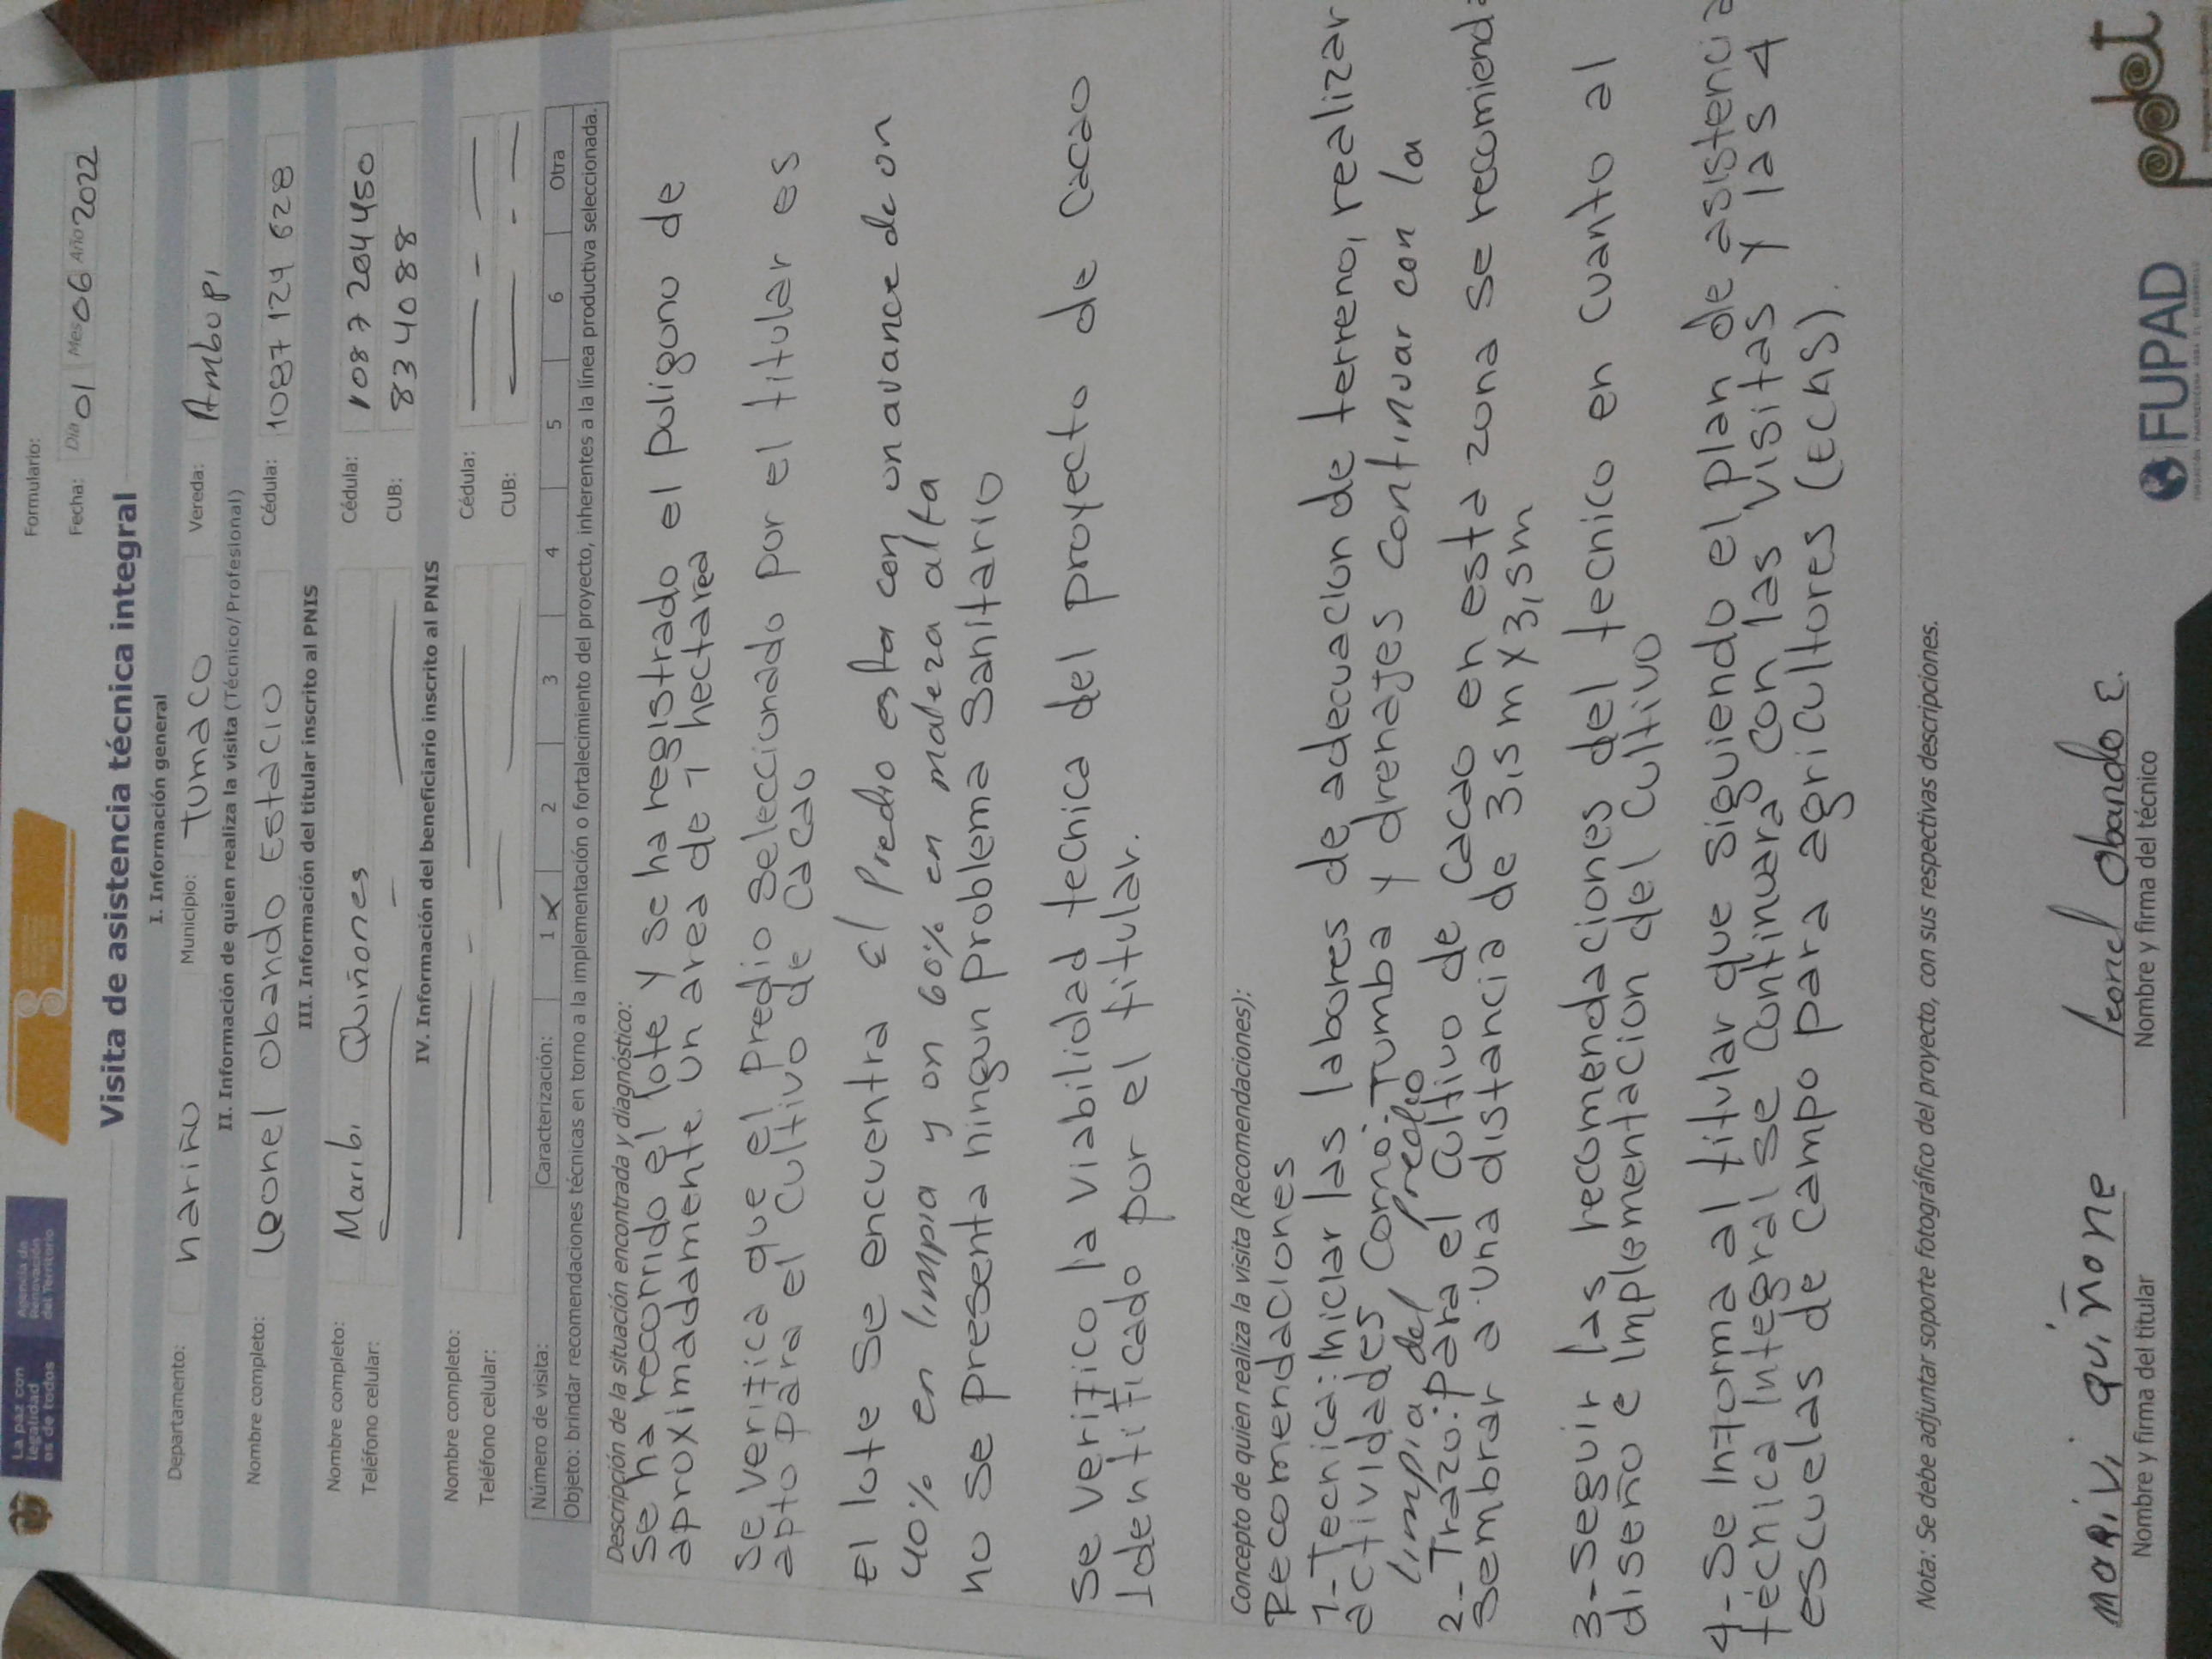 La paz con
legalidad
es de todos
Agencia de
Renovación
del Territorio
Formulario:
Fecha: Día 01 Mes 06 Año 2022
Visita de asistencia técnica integral
I. Información general
Departamento: nariño Municipio: Tumaco Vereda: Ambupi
II. Información de quien realiza la visita (Técnico/Profesional)
Nombre completo: Leonel Obando Estacio Cédula: 1087 124 628
III. Información del titular inscrito al PNIS
Nombre completo: Maribi Quiñones Cédula: 1087204450
Teléfono celular: CUB: 8334088
IV. Información del beneficiario inscrito al PNIS
Nombre completo: Cédula:
Teléfono celular: CUB:
Número de visita: Caracterización: 1 X 2 3 4 5 6 Otra
Objeto: brindar recomendaciones técnicas en torno a la implementación o fortalecimiento del proyecto, inherentes a la línea productiva seleccionada.
Descripción de la situación encontrada y diagnóstico:
Se ha recorrido el lote y se ha registrado el poligono de
aproximadamente un area de 1 hectarea
Se verifica que el predio seleccionado por el titular es
apto para el cultivo de cacao
El lote se encuentra El Predio esta con un avance de un
40% en limpia y un 60% en maleza alta
no se presenta ningun problema Sanitario
Se verifico la viabilidad tecnica del proyecto de cacao
Identificado por el titular.
Concepto de quien realiza la visita (Recomendaciones):
Recomendaciones
1-Tecnica: Iniciar las labores de adecuacion de terreno, realizar
actividades como: Tumba y drenajes continuar con la
limpia del predio
2-Trazo: para el cultivo de cacao en esta zona se recomienda
sembrar a una distancia de 3,5 m x 3,5m
3-Seguir las recomendaciones del tecnico en cuanto al
diseño e Implementacion del cultivo
4-Se Informa al titular que siguiendo el plan de asistencia
técnica Integral se continuara con las visitas y las 4
escuelas de campo para agricultores (ECAS).
Nota: Se debe adjuntar soporte fotográfico del proyecto, con sus respectivas descripciones.
Marivi quiñone
Nombre y firma del titular
Leonel Obando E.
Nombre y firma del técnico
FUPAD
pdet